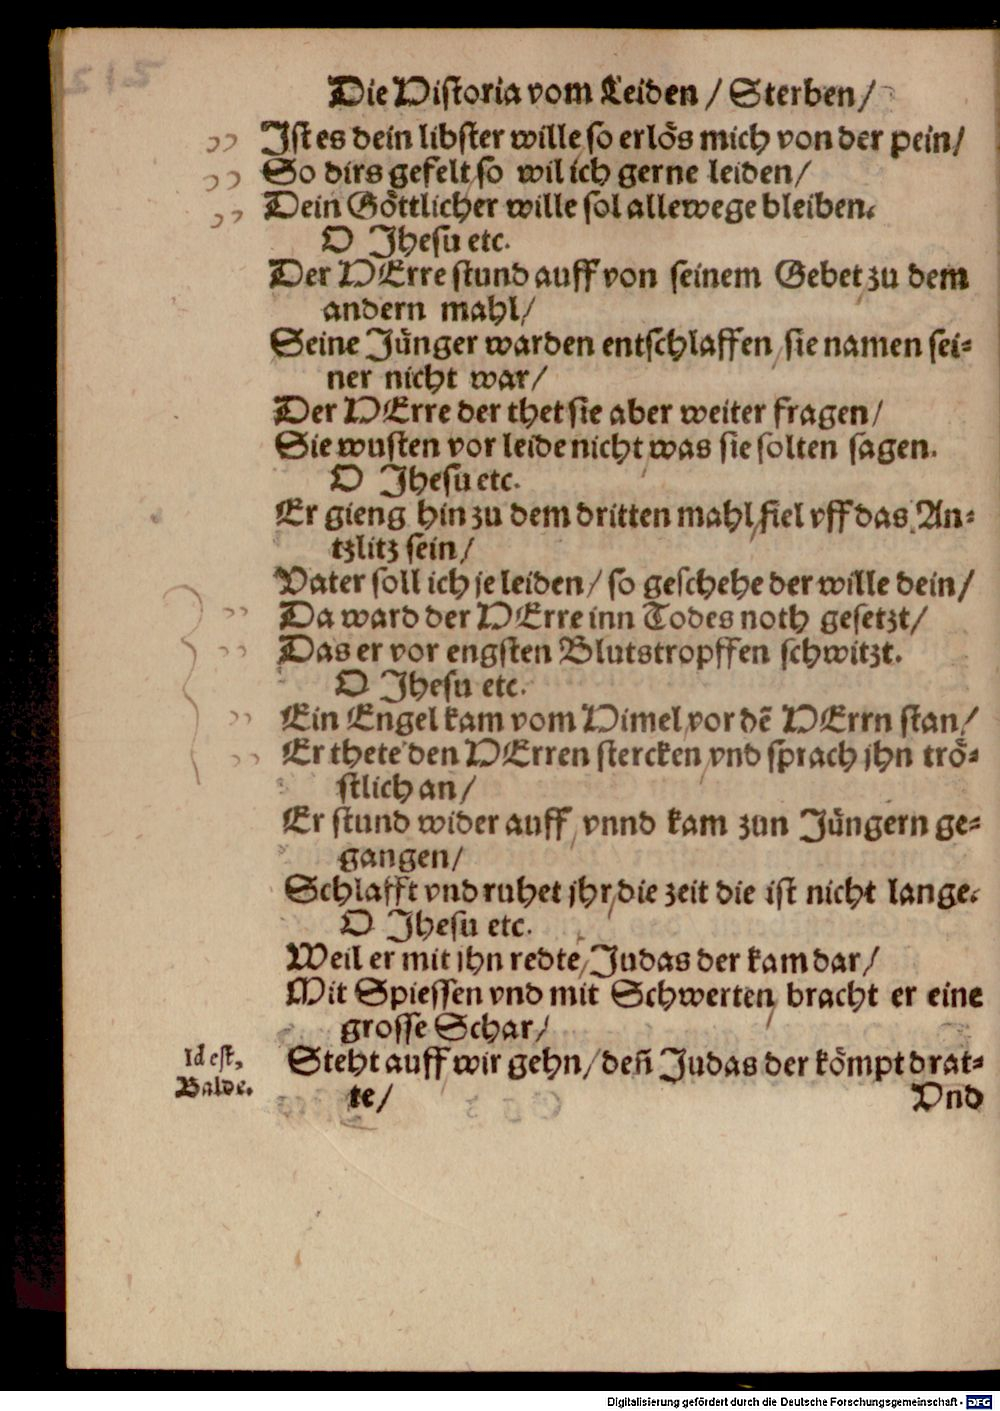 Die Historia vom Leiden / Sterben /
Ist es dein libster wille / so erlös mich von der pein /
So dirs gefelt / so wil ich gerne leiden /
Dein Göttlicher wille sol allewege bleiben.
O Jhesu etc.
Der HErre stund auff von seinem Gebet / zu dem
andern mahl /
Seine Jünger warden entschlaffen / sie namen sei=
ner nicht war /
Der HErre der thet sie aber weiter fragen /
Sie wusten vor leide nicht / was sie solten sagen.
O Jhesu etc.
Er gieng hin zu dem dritten mahl / fiel vff das An=
tzlitz sein /
Vater soll ich je leiden / so geschehe der wille dein /
Da ward der HErre inn Todes noth gesetzt /
Das er vor engsten Blutstropffen schwitzt.
O Jhesu etc.
Ein Engel kam vom Himel / vor dē HErrn stan /
Er thete den HErren stercken / vnd sprach jhn trö=
stlich an /
Er stund wider auff / vnnd kam zun Jüngern ge=
gangen /
Schlafft vnd ruhet jhr / die zeit die ist nicht lange.
O Jhesu etc.
Weil er mit jhn redte / Judas der kam dar /
Mit Spiessen vnd mit Schwerten / bracht er eine
grosse Schar /
Id est, Steht auff wir gehn / deñ Judas der kömpt drat=
Balde. te / Vnd
Digitalisierung gefördert durch die Deutsche Forschungsgemeinschaft - DFG